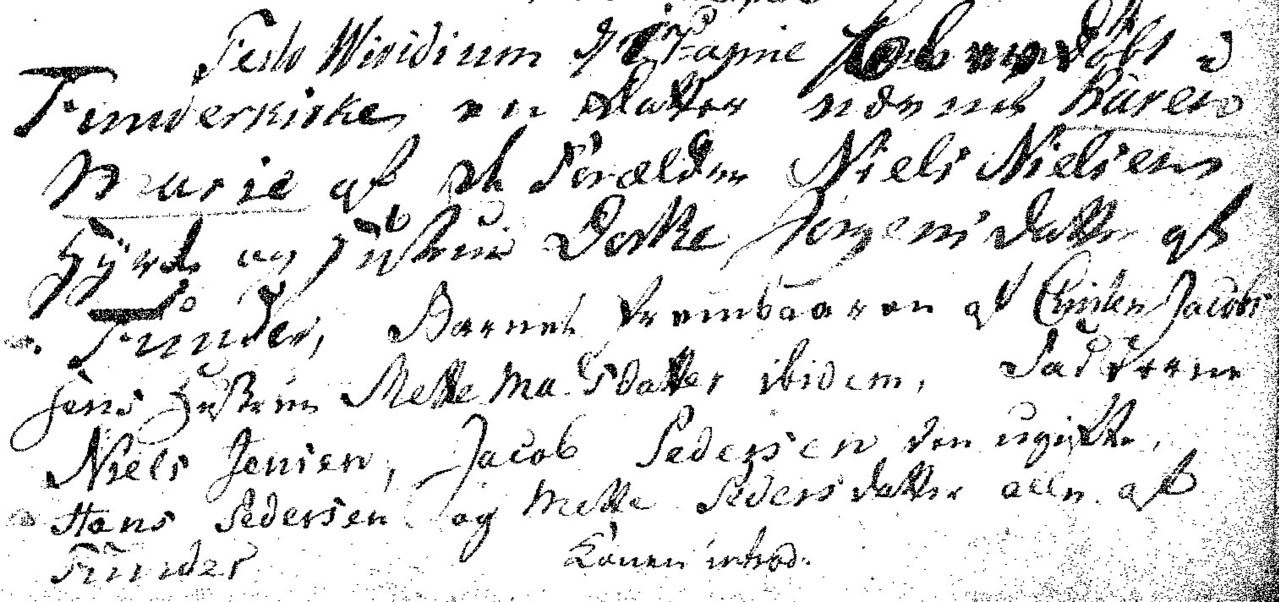 Festo Viridium d 17 Majie blev döbt i
Funderkirke en Datter nævnt Karen
Marie af sk Forælder Niels Nielsens
Hyrde og Hüstrue Dorthe Jörgens datter af
Funder, Barnet frembaaren af Christen Jacob
sens Hustrue Mette Ma dsdatter ibidem, Fadderne
Niels Jensen, Jacob Pedersen den ugifte,
Hans Pedersen og Mette Peders datter alle af
Funder Konen introd.